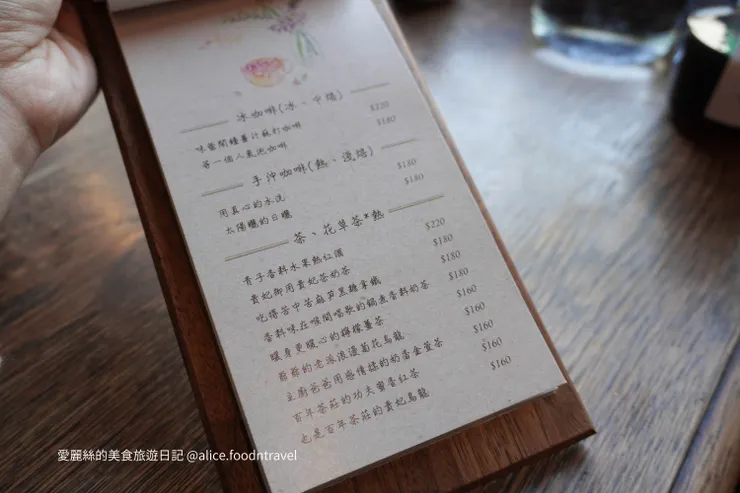 冰咖啡(冰、中焙)
味蕾開鐘薑汁蘇打咖啡 $220
等一個人氣泡咖啡 $180
手沖咖啡(熱、淺焙)
用真心的水洗 $180
太陽曬的日曬 $180
茶、花草茶*熱
青子香料水果熱紅酒 $220
貴妃御用貴妃茶奶茶 $180
吃得苦中苦麻芛黑糖拿鐵 $180
香料味在喉間唱歌的鍋煮香料奶茶 $180
暖身更暖心的檸檬薑茶 $160
爺爺的老派浪漫菊花烏龍 $160
主廚爸爸用感情揉的奶香金萱茶 $160
百年茶莊的功夫蜜香紅茶 $160
也是百年茶莊的貴妃烏龍 $160
愛麗絲的美食旅遊日記 @alice.foodntravel